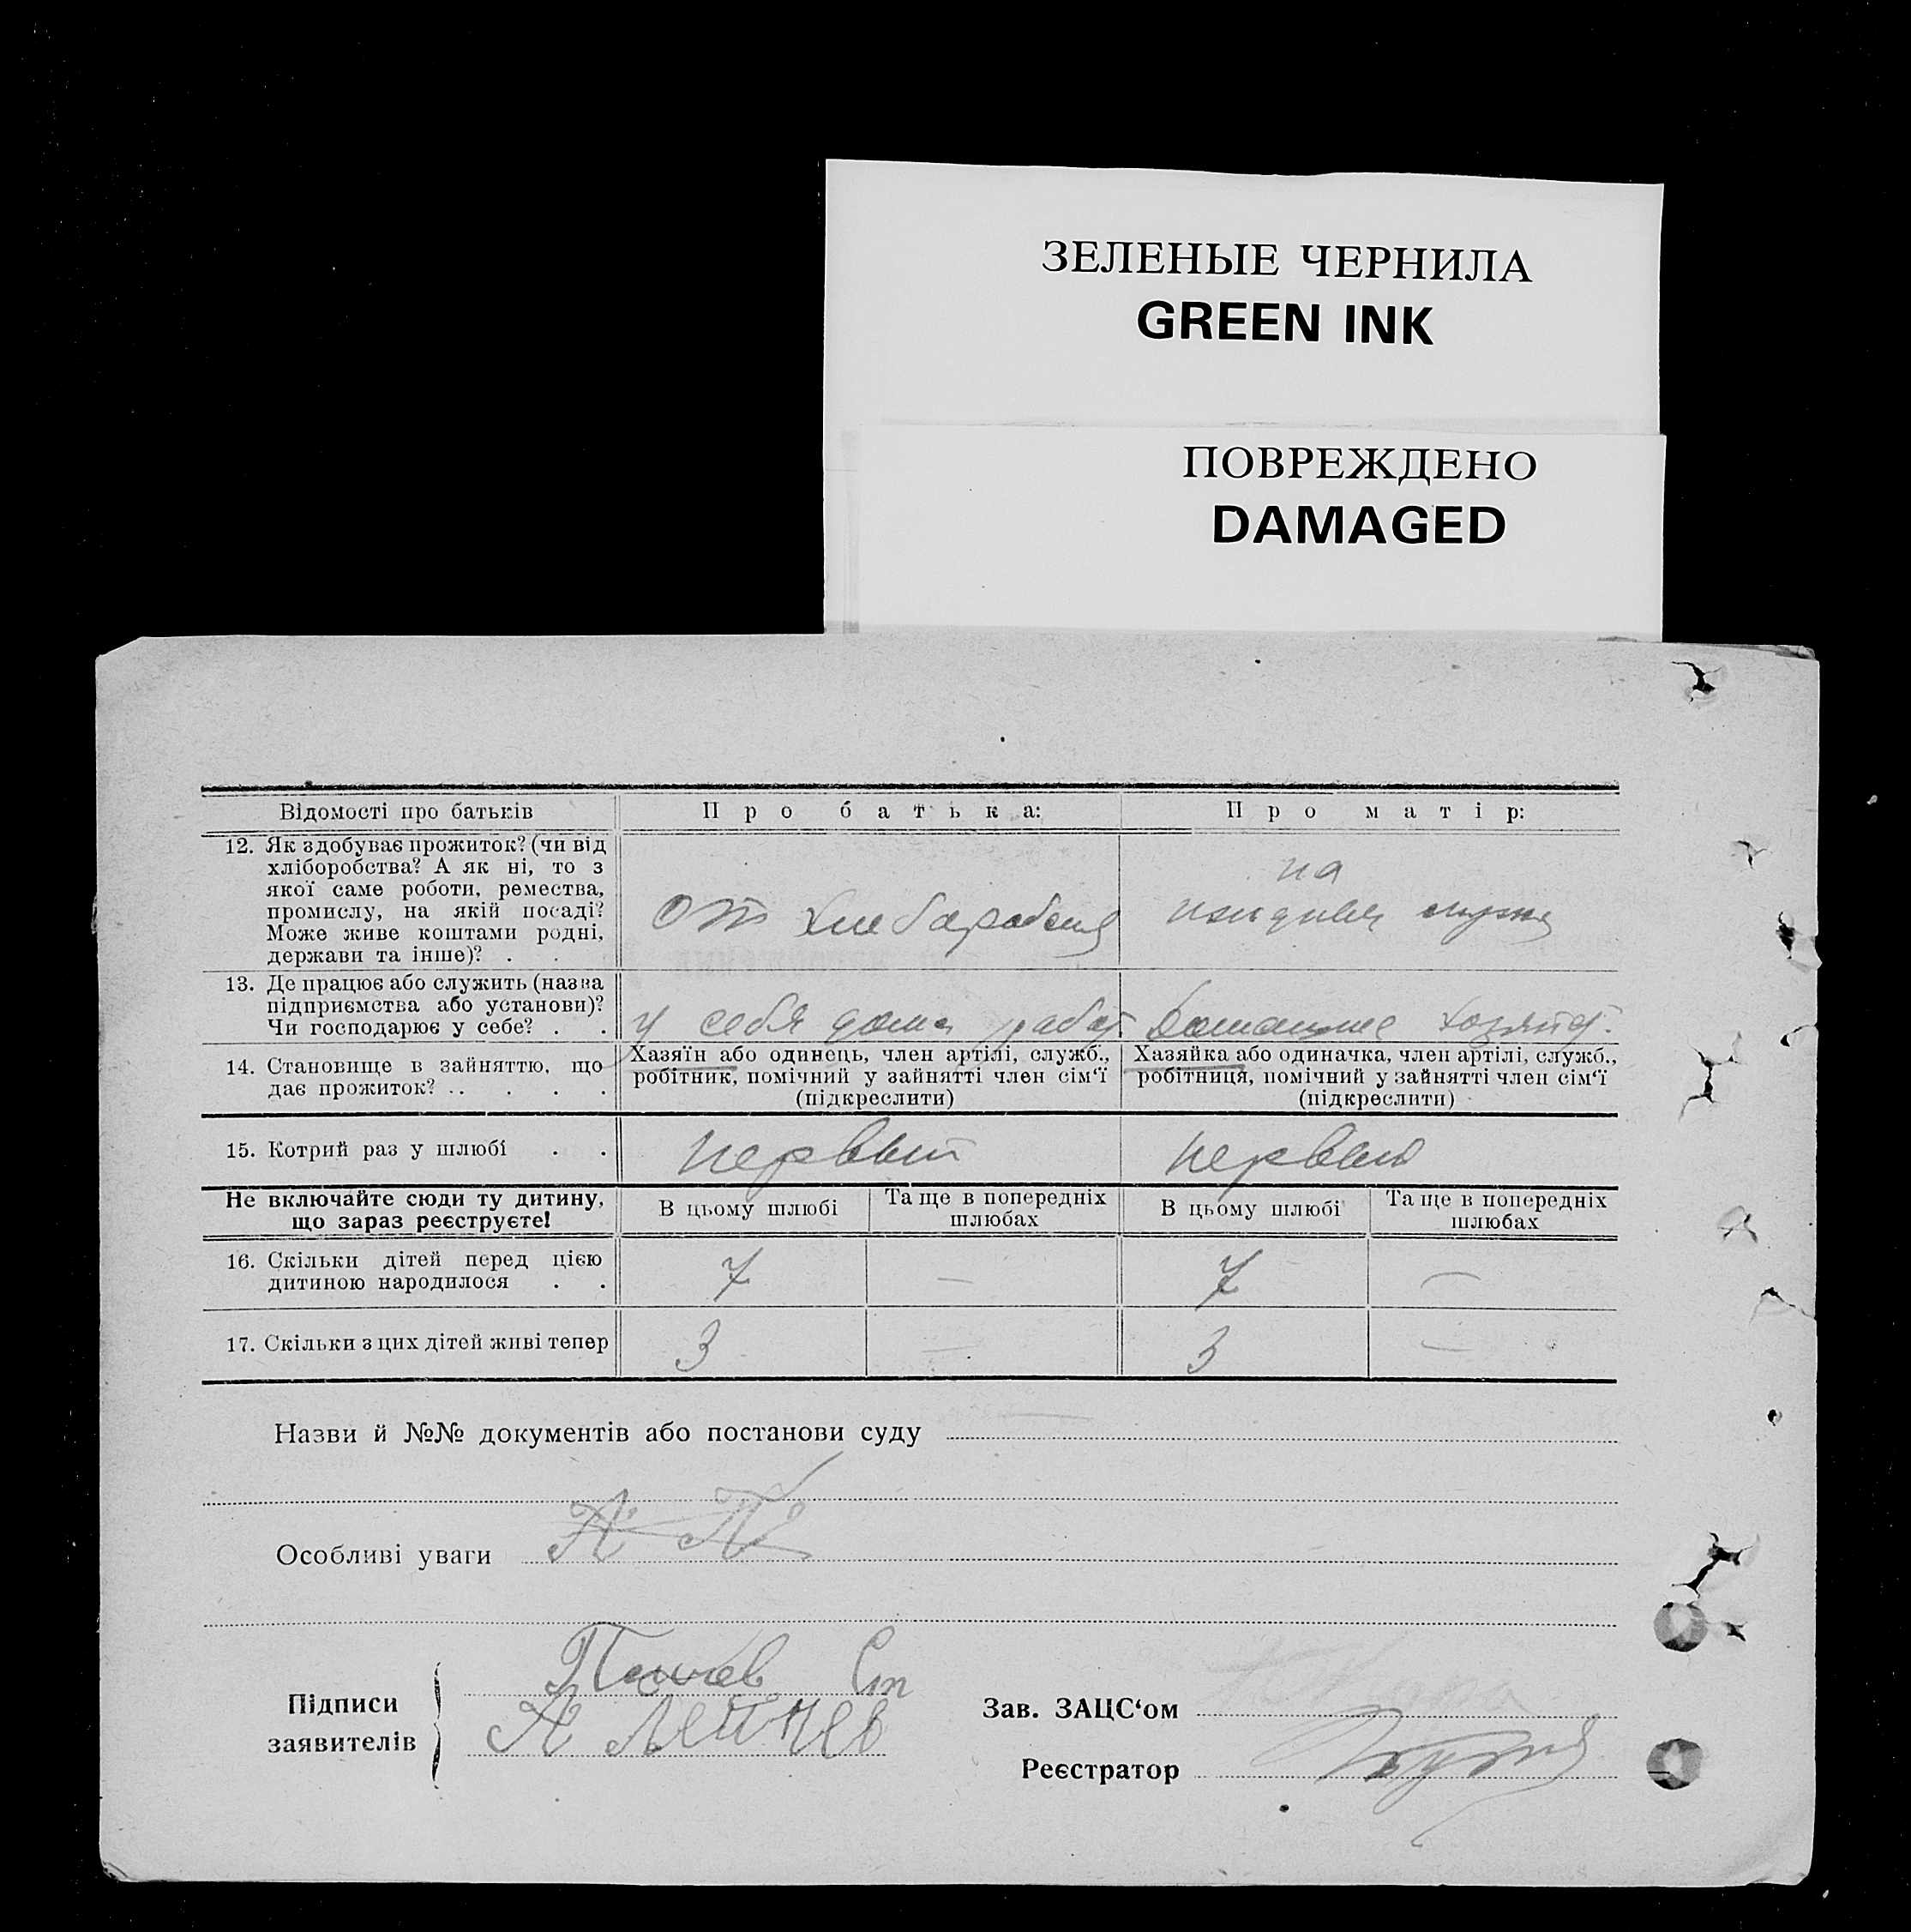 ЗЕЛЕНЫЕ ЧЕРНИЛА
GREEN INK
ПОВРЕЖДЕНО
DAMAGED
Відомості про батьків
Про батька:
Про матір:
12. Як здобуває прожиток? (чи від
хліборобства? А як ні, то з
якої саме роботи, ремества,
промислу, на якій посаді?
Може живе коштами родні,
держави та інше)? .
От
на
13. Де працює або служить (назва
підприємства або установи)?
Чи господарює у себе? . .
у себя дома работ
Домашнее хозяйст.
14. Становище в зайняттю, що
дає прожиток? . . . . .
Хазяїн або одинець, член артілі, служб.,
робітник, помічний у зайнятті член сім‘ї
(підкреслити)
Хазяйка або одиначка, член артілі, служб.,
робітниця, помічний у зайнятті член сім‘ї
(підкреслити)
15. Котрий раз у шлюбі . .
первый
первый
Не включайте сюди ту дитину,
що зараз реєструєте!
В цьому шлюбі
Та ще в попередніх
шлюбах
В цьому шлюбі
Та ще в попередніх
шлюбах
16. Скільки дітей перед цією
дитиною народилося . .
7
—
7
—
17. Скільки з цих дітей живі тепер
3
—
3
—
Назви й №№ документів або постанови суду
Особливі уваги
Підписи
заявителів
Ст
Зав. ЗАЦС‘ом
Реєстратор